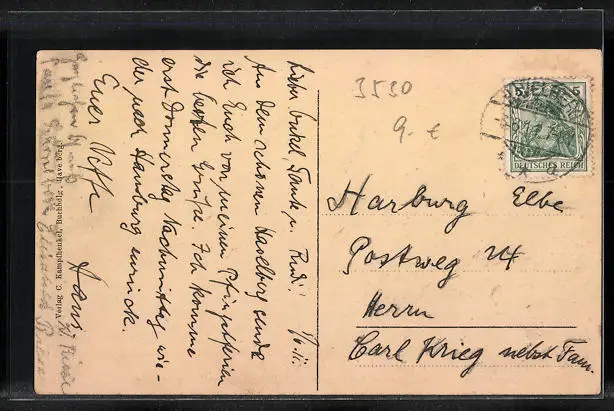 1/6. 11.
Lieber Onkel, Tante u. Rudi!
Aus dem schönen Havelberg sende
ich Euch von meinen Pfingstferien
die besten Grüße. Ich komme
erst Donnerstag Nachmittag wie-
der nach Hamburg zurück.
Euer Neffe
Hans
Verlag C. Kampfhenkel, Buchhdlg., Havelberg.
3530
9.- €
5
DEUTSCHES REICH
Harburg Elbe
Postweg 24
Herrn
Carl Krieg nebst Fam.